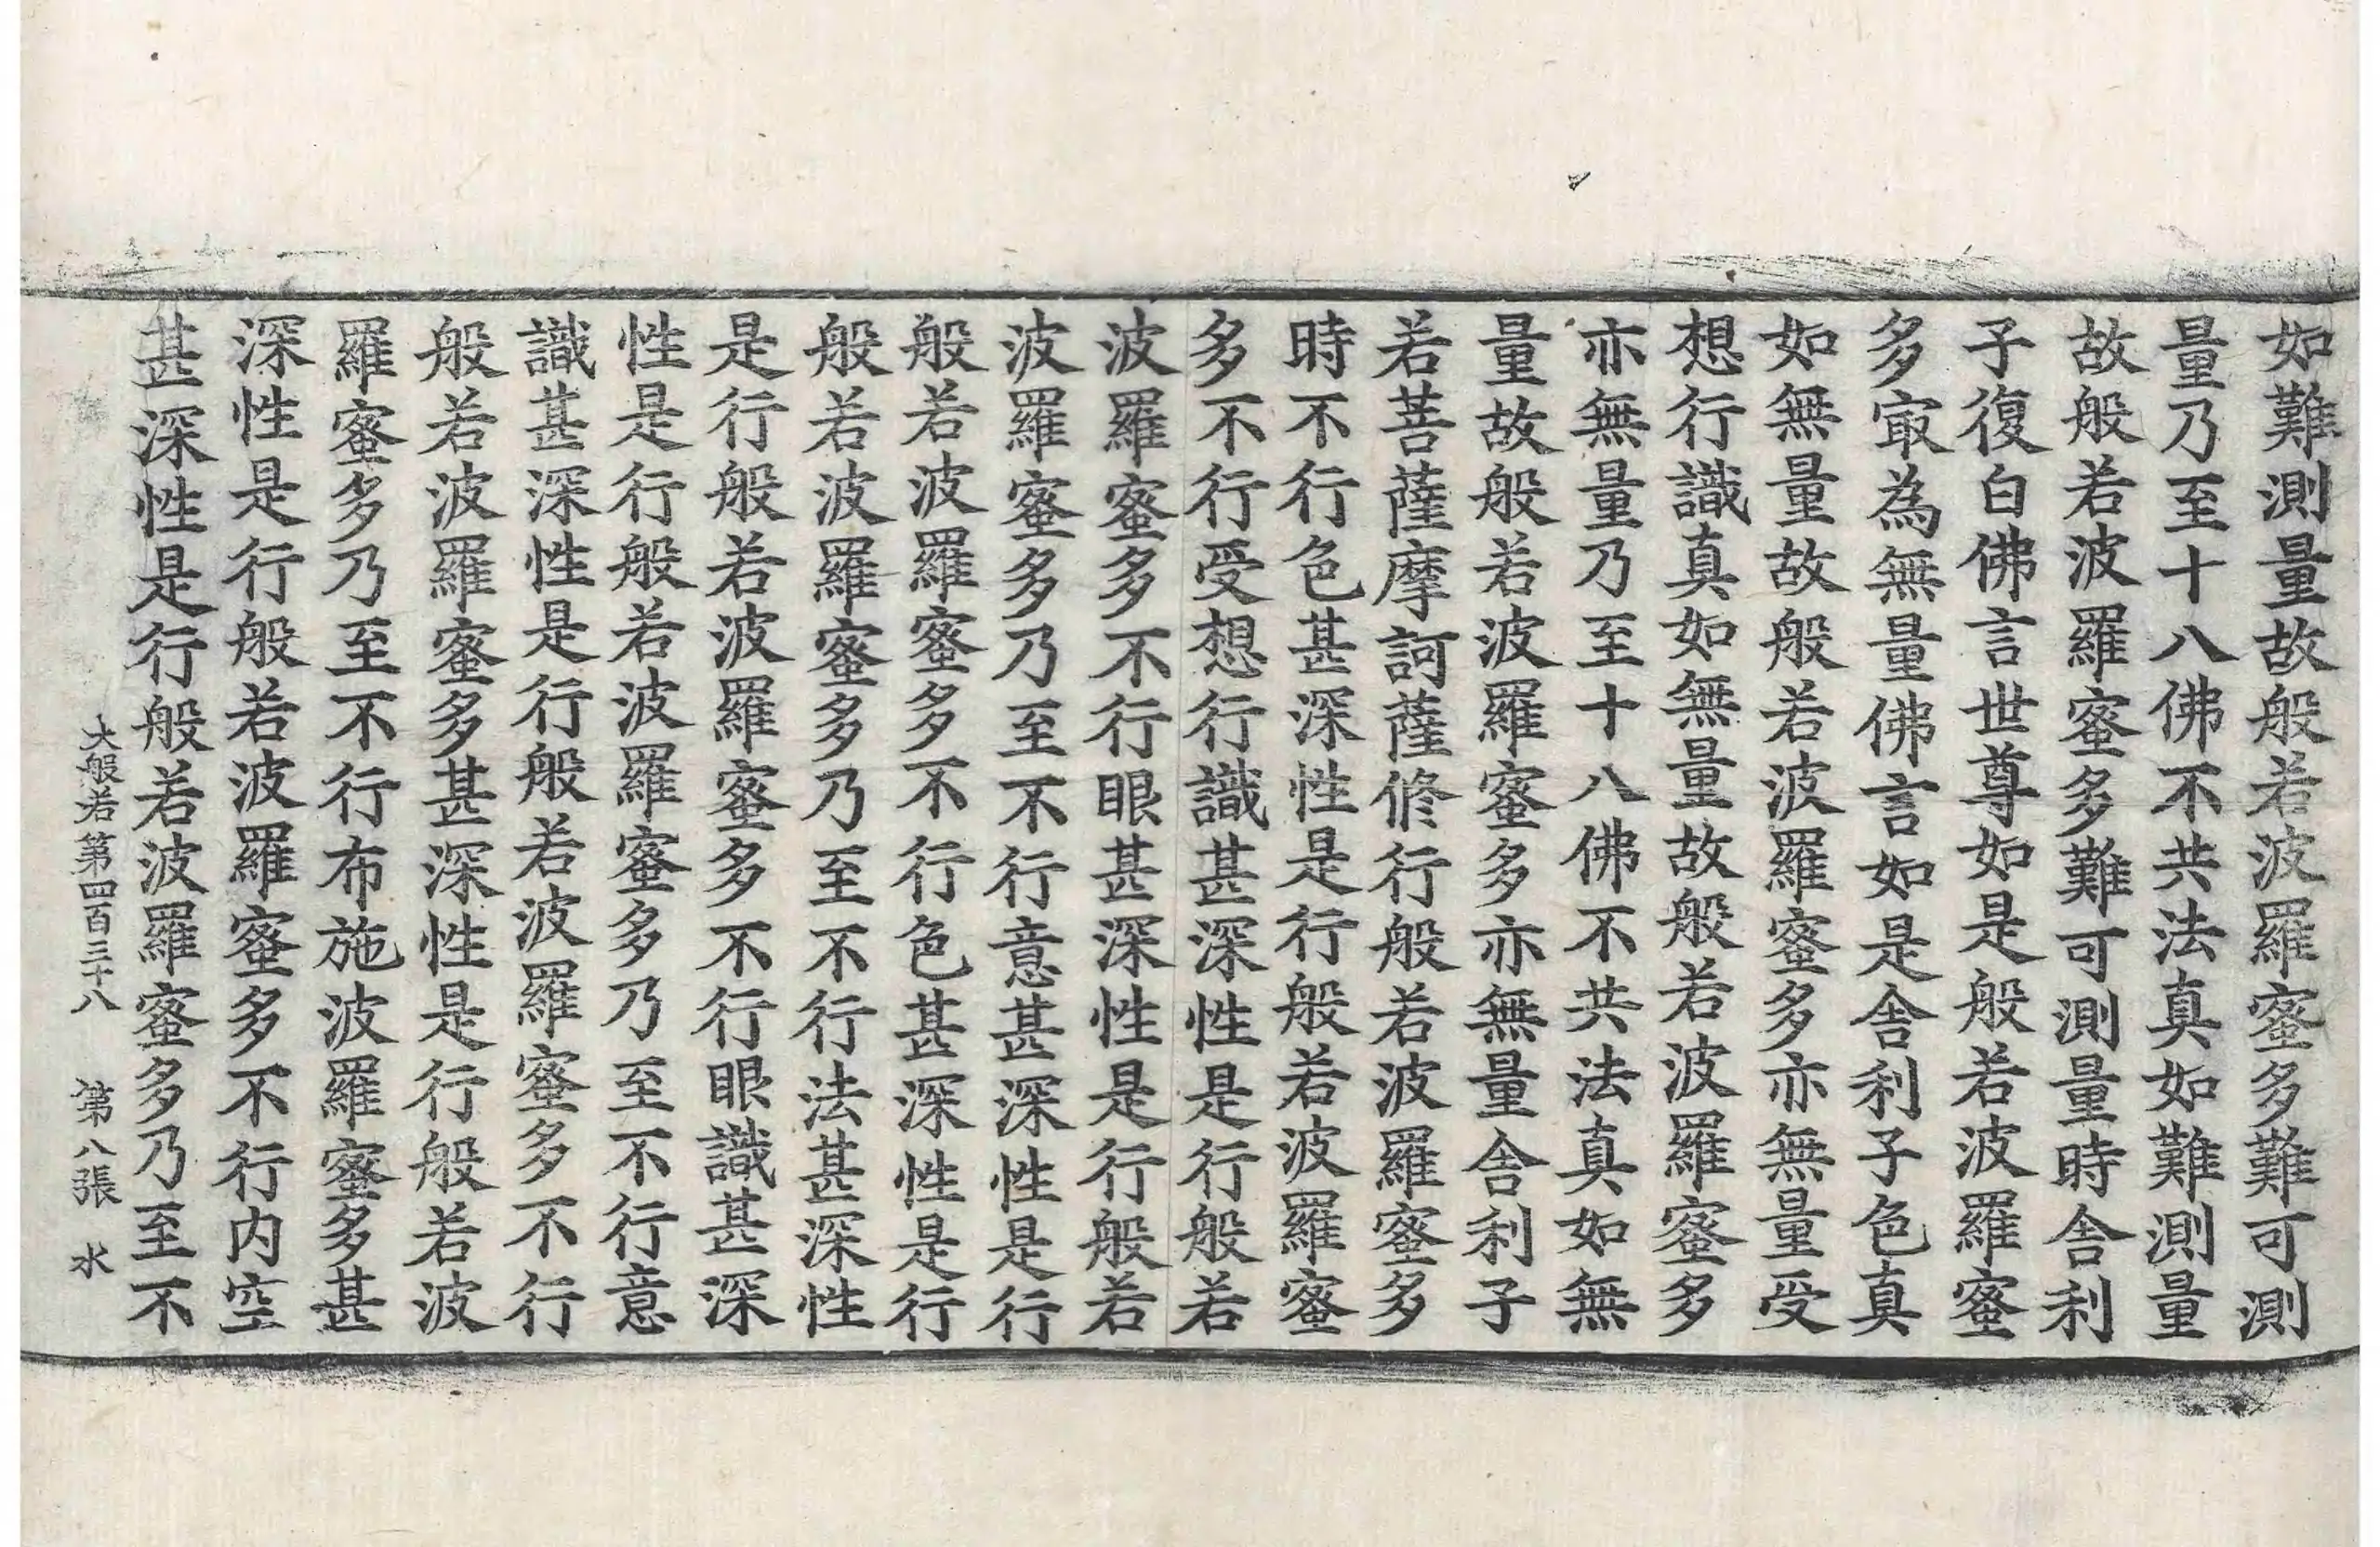 如難測量故般若波羅蜜多難可測
量乃至十八佛不共法真如難測量
故般若波羅蜜多難可測量時舎利
子復白佛言世尊如是般若波羅蜜
多㝡為無量佛言如是舎利子色真
如無量故般若波羅蜜多亦無量受
想行識真如無量故般若波羅蜜多
亦無量乃至十八佛不共法真如無
量故般若波羅蜜多亦無量舎利子
若菩薩摩訶薩修行般若波羅蜜多
時不行色甚深性是行般若波羅蜜
多不行受想行識甚深性是行般若
波羅蜜多不行眼甚深性是行般若
波羅蜜多乃至不行意甚深性是行
般若波羅蜜多不行色甚深性是行
般若波羅蜜多乃至不行法甚深性
是行般若波羅蜜多不行眼識甚深
性是行般若波羅蜜多乃至不行意
識甚深性是行般若波羅蜜多不行
般若波羅蜜多甚深性是行般若波
羅蜜多乃至不行布施波羅蜜多甚
深性是行般若波羅蜜多不行内空
甚深性是行般若波羅蜜多乃至不
大般若第四百三十八 第八張 水